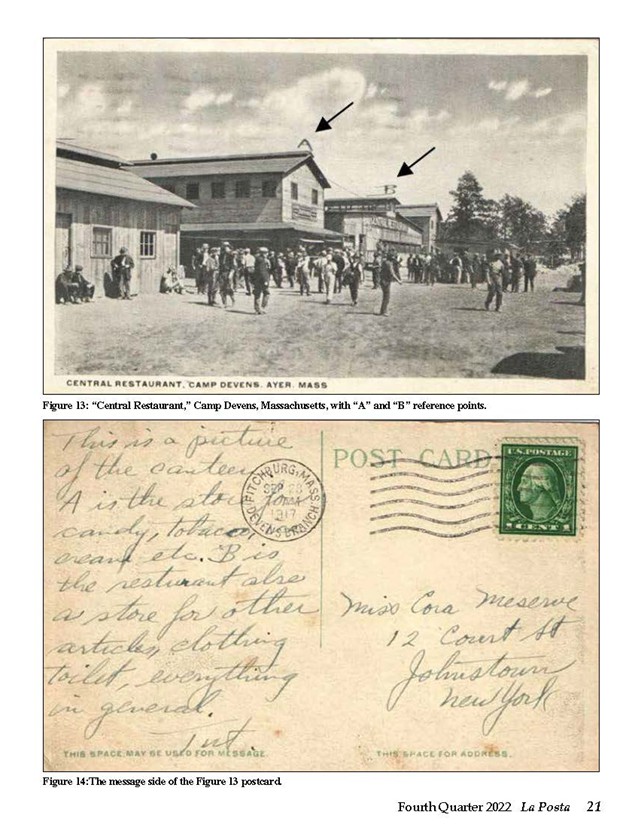 CENTRAL RESTAURANT, CAMP DEVENS. AYER. MASS
Figure 13: “Central Restaurant,” Camp Devens, Massachusetts, with “A” and “B” reference points.
This is a picture
of the canteen
A is the store for
candy, tobacco,
cream etc. B is
the resturant also
a store for other
articles, clothing
toilet, everything
in general.
THIS SPACE MAY BE USED FOR MESSAGE.
FITCHBURG, MASS.
SEP 28
1917
DEVENS BRANCH
POST CARD
U.S. POSTAGE
1 CENT 1
Miss Cora Meserve
12 Court St
Johnstown
New York
THIS SPACE FOR ADDRESS.
Figure 14:The message side of the Figure 13 postcard.
Fourth Quarter 2022 La Posta 21